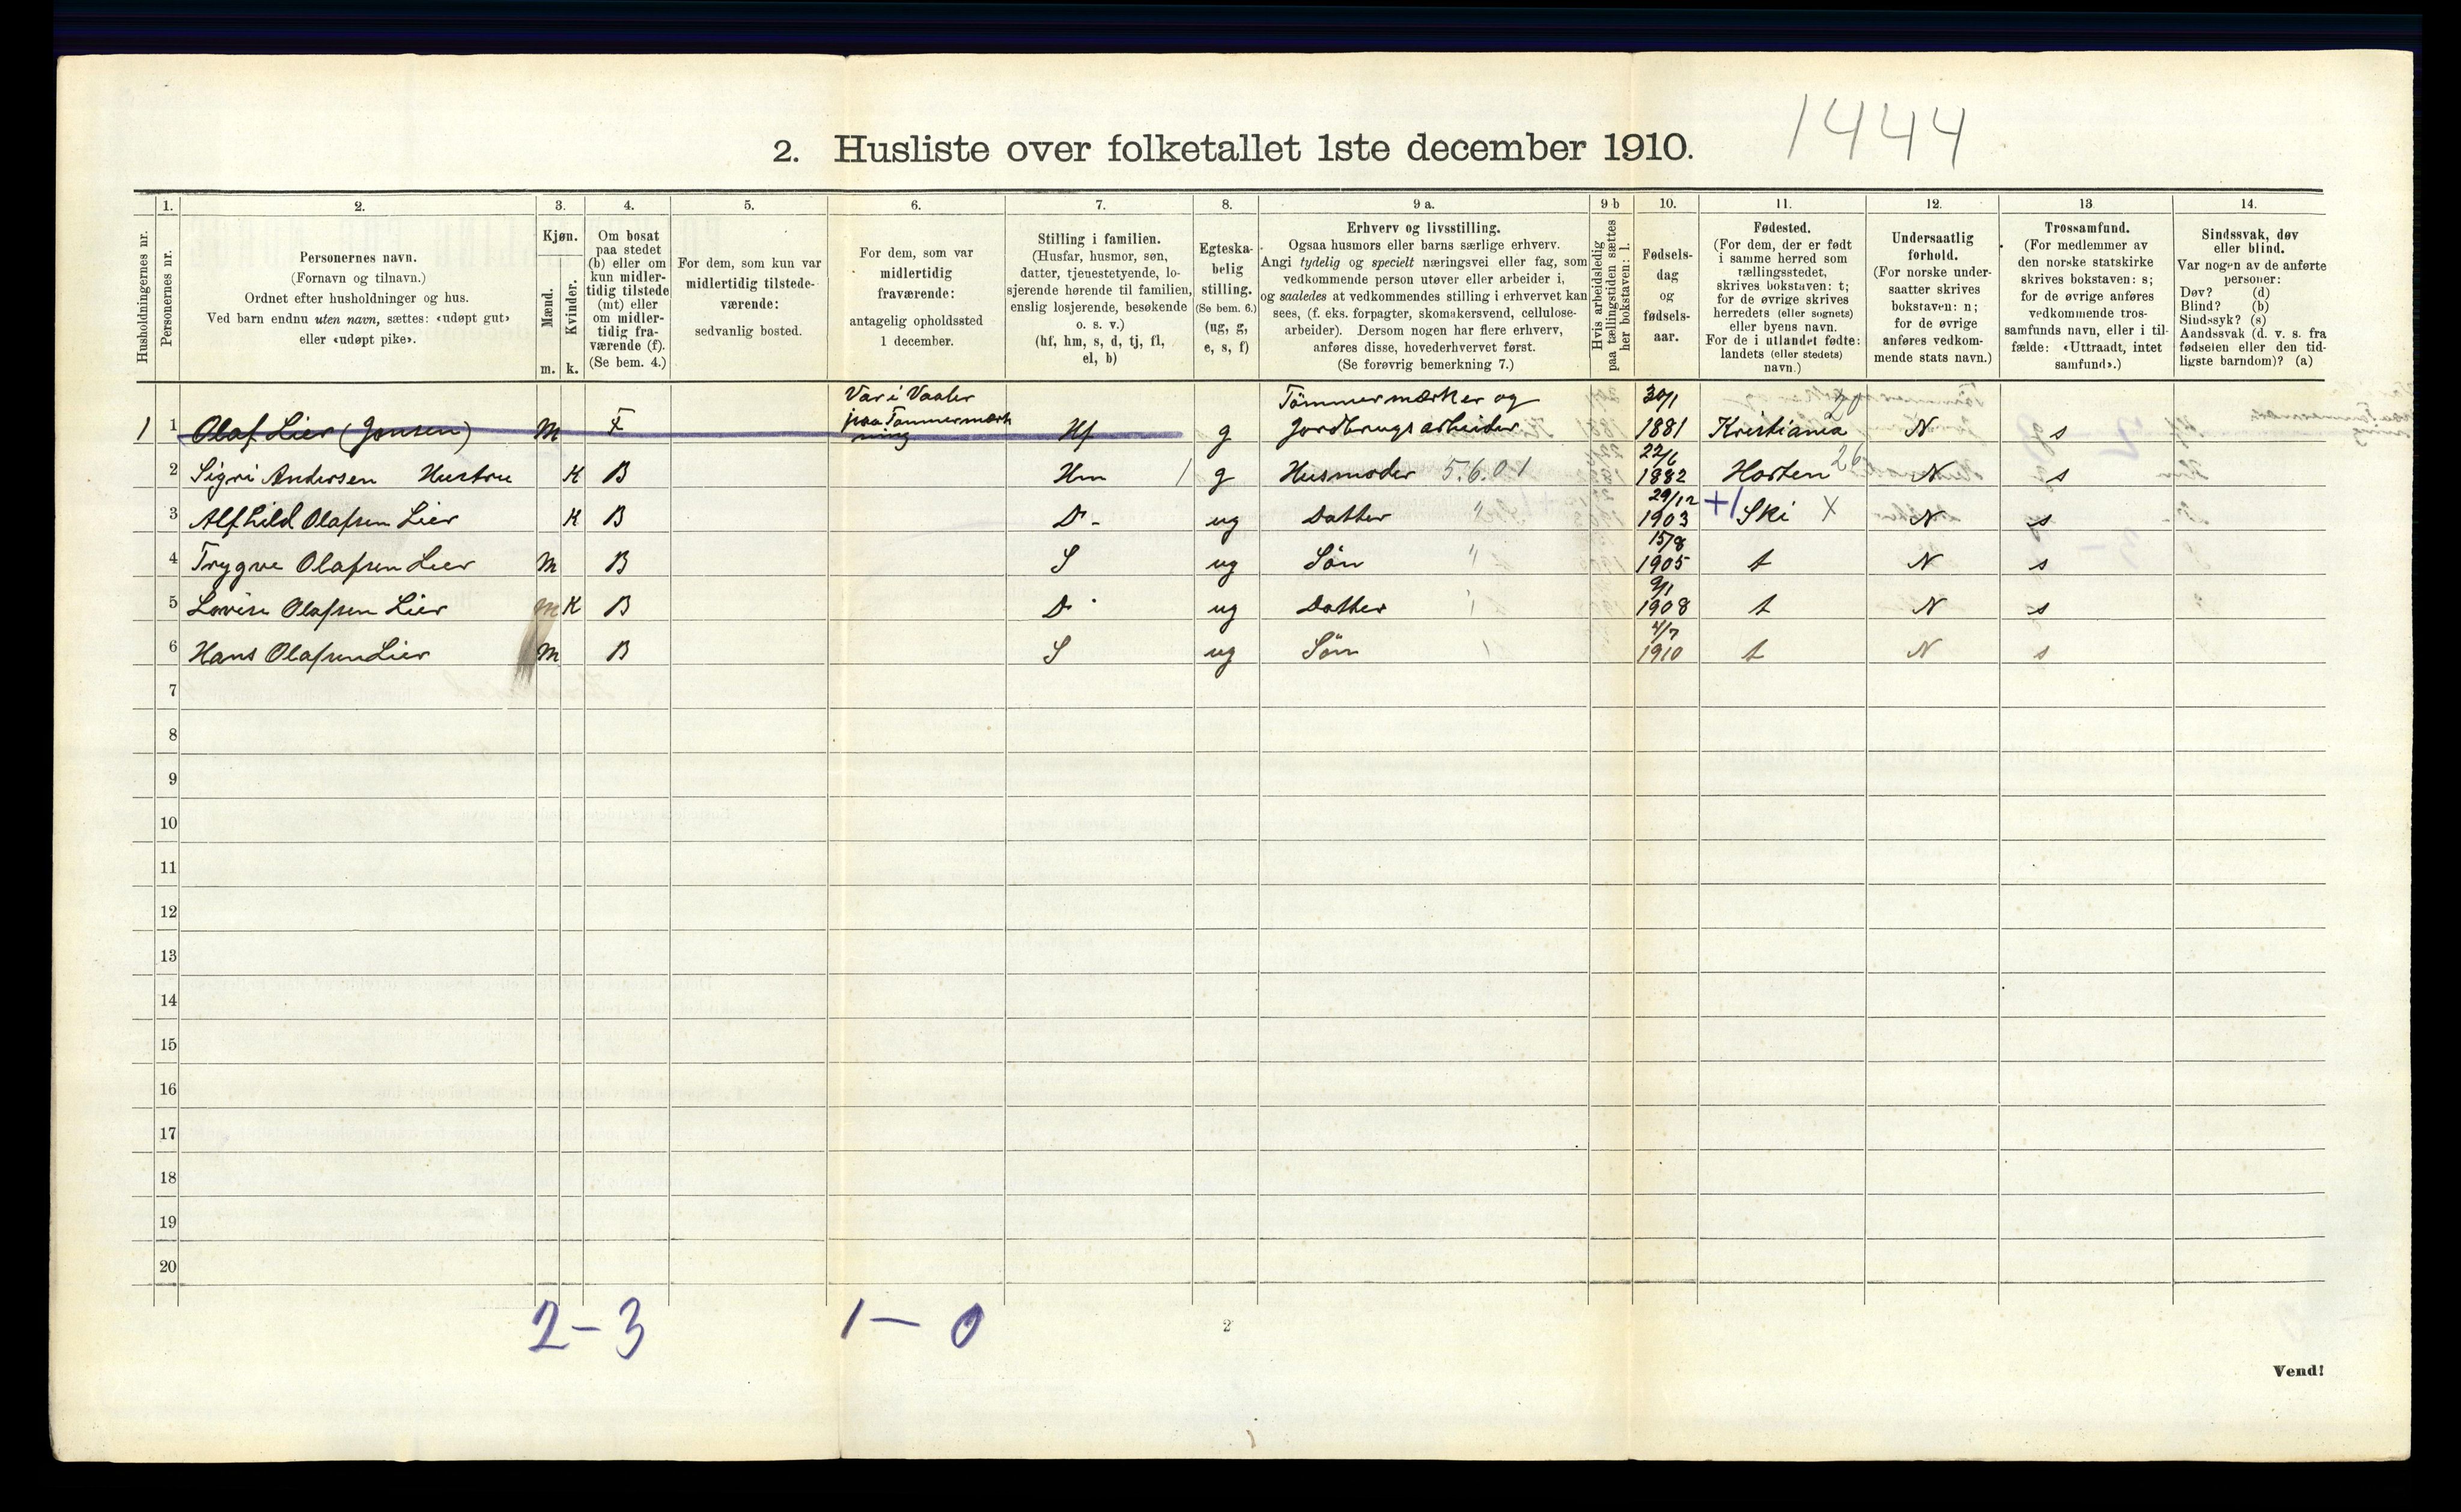 1444
2. Husliste over folketallet 1ste december 1910.
Husholdningernes nr.
1.
Personernes nr.
2.
Personernes navn.
(Fornavn og tilnavn.)
Ordnet efter husholdninger og hus.
Ved barn endnu uten navn, sættes: «udøpt gut»
eller «udøpt pike».
3.
Kjøn.
Mænd.
Kvinder.
m. k.
4.
Om bosat
paa stedet
(b) eller om
kun midler-
tidig tilstede
(mt) eller
om midler-
tidig fra-
værende (f).
(Se bem. 4.)
5.
For dem, som kun var
midlertidig tilstede-
værende:
sedvanlig bosted.
6.
For dem, som var
midlertidig
fraværende:
antagelig opholdssted
1 december.
7.
Stilling i familien.
(Husfar, husmor, søn,
datter, tjenestetyende, lo-
sjerende hørende til familien,
enslig losjerende, besøkende
o. s. v.)
(hf, hm, s, d, tj, fl,
el, b)
8.
Egteska-
belig
stilling.
(Se bem. 6.)
(ug, g,
e, s, f)
9 a.
Erhverv og livsstilling.
Ogsaa husmors eller barns særlige erhverv.
Angi tydelig og specielt næringsvei eller fag, som
vedkommende person utøver eller arbeider i,
og saaledes at vedkommendes stilling i erhvervet kan
sees, (f. eks. forpagter, skomakersvend, cellulose-
arbeider). Dersom nogen har flere erhverv,
anføres disse, hovederhvervet først.
(Se forøvrig bemerkning 7.)
9 b
Hvis arbeidsledig
paa tællingstiden sættes
her bokstaven: l.
10.
Fødsels-
dag
og
fødsels-
aar.
11.
Fødested.
(For dem, der er født
i samme herred som
tællingsstedet,
skrives bokstaven: t;
for de øvrige skrives
herredets (eller sognets)
eller byens navn.
For de i utlandet fødte:
landets (eller stedets)
navn.)
12.
Undersaatlig
forhold.
(For norske under-
saatter skrives
bokstaven: n;
for de øvrige
anføres vedkom-
mende stats navn.)
13
Trossamfund.
(For medlemmer av
den norske statskirke
skrives bokstaven: s;
for de øvrige anføres
vedkommende tros-
samfunds navn, eller i til-
fælde: «Uttraadt, intet
samfund».)
14.
Sindssvak, døv
eller blind.
Var nogen av de anførte
personer:
Døv? (d)
Blind? (b)
Sindssyk? (s)
Aandssvak (d. v. s. fra
fødselen eller den tid-
ligste barndom)? (a)
Var i Vaaler Tömmermærker og 30/1
1 1 Olaf Lier (Jonsen) M F paa Tømmermærk Hf g Jordbrugsarbeider 1881 Kristiania N s
ning
22/6
2 Sigri Andersen Hustru K B Hm 1 g Husmoder 5.6.01 1882 Horten 26 N s
29/12
3 Alfhild Olafsen Lier K B D - ug Datter " 1903 +1 Ski X N s
15/8
4 Trygve Olafsen Lier M B S ug Sön " 1905 t N s
9/1
5 Lovise Olafsen Lier M K B D ug Datter 1908 t N s
4/7
6 Hans Olafsen Lier M B S ug Sön 1910 t N s
7
8
9
10
11
12
13
14
15
16
17
18
19
20
2 – 3 1 – 0
2
Vend!